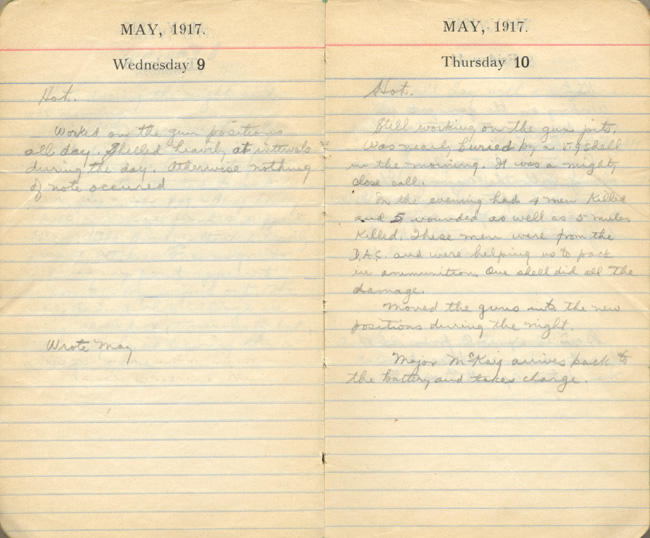 MAY, 1917.
Wednesday 9
Hot.
Worked on the gun positions
all day. Shelled heavily at intervals
during the day. Otherwise nothing
of note occured
Wrote May
MAY, 1917.
Thursday 10
Hot.
Still working on the gun pits.
Was nearly buried by a 5.9 shell
in the morning. It was a mighty
close call.
In the evening had 4 men killed
and 5 wounded as well as 5 mules
killed. These men were from the
D.A.C. and were helping us to pack
in ammunition. One shell did all the
damage.
Moved the guns into the new
positions during the night.
Major McKay arrives back to
the battery and takes charge.